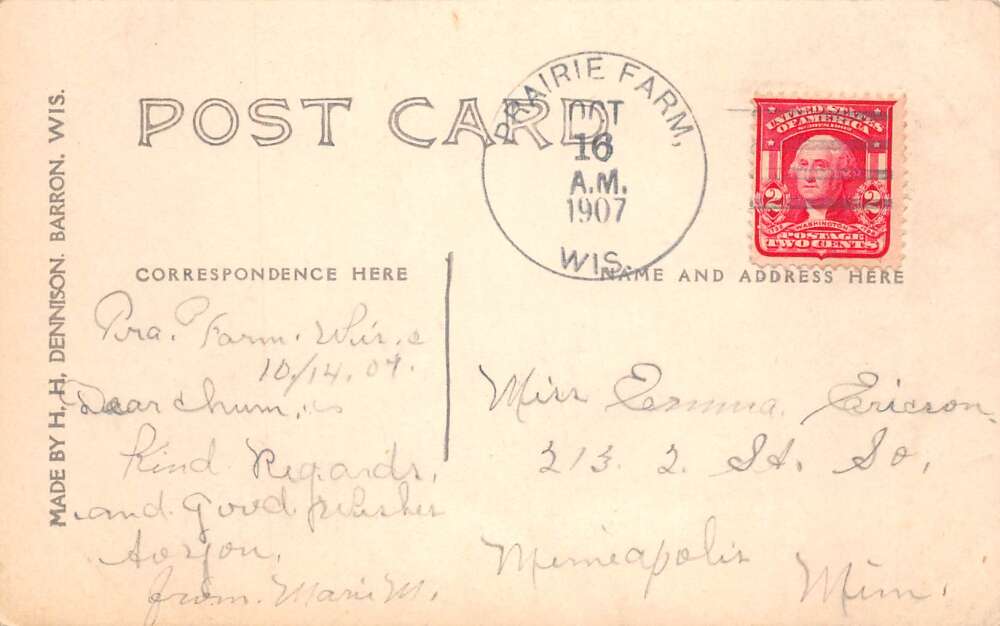 MADE BY H. H. DENNISON. BARRON. WIS.
POST CARD
PRAIRIE FARM,
OCT
16
A.M.
1907
WIS.
UNITED STATES
OF AMERICA
SERIES 1902
2 WASHINGTON 2
POSTAGE
TWO CENTS
CORRESPONDENCE HERE
NAME AND ADDRESS HERE
Pra. Farm. Wis.
10/14.07.
Dear chum,
Kind Regards,
and good wishes
to you,
from. Marie M.
Miss Emma Ericson
213. 2. St. So.
Minneapolis
Minn.